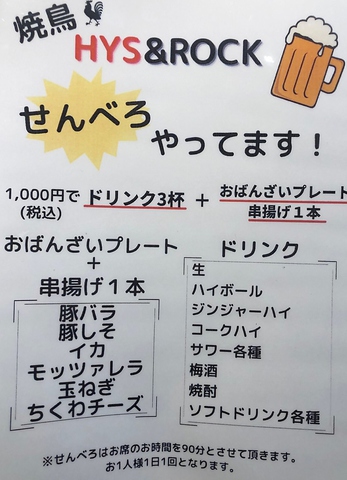 焼鳥
HYS&ROCK
せんべろ
やってます！
1,000円で ドリンク3杯 + おばんざいプレート
(税込) 串揚げ１本
おばんざいプレート
+
串揚げ１本
豚バラ
豚しそ
イカ
モッツァレラ
玉ねぎ
ちくわチーズ
ドリンク
生
ハイボール
ジンジャーハイ
コークハイ
サワー各種
梅酒
焼酎
ソフトドリンク各種
※せんべろはお席のお時間を90分とさせて頂きます。
お1人様1日1回となります。